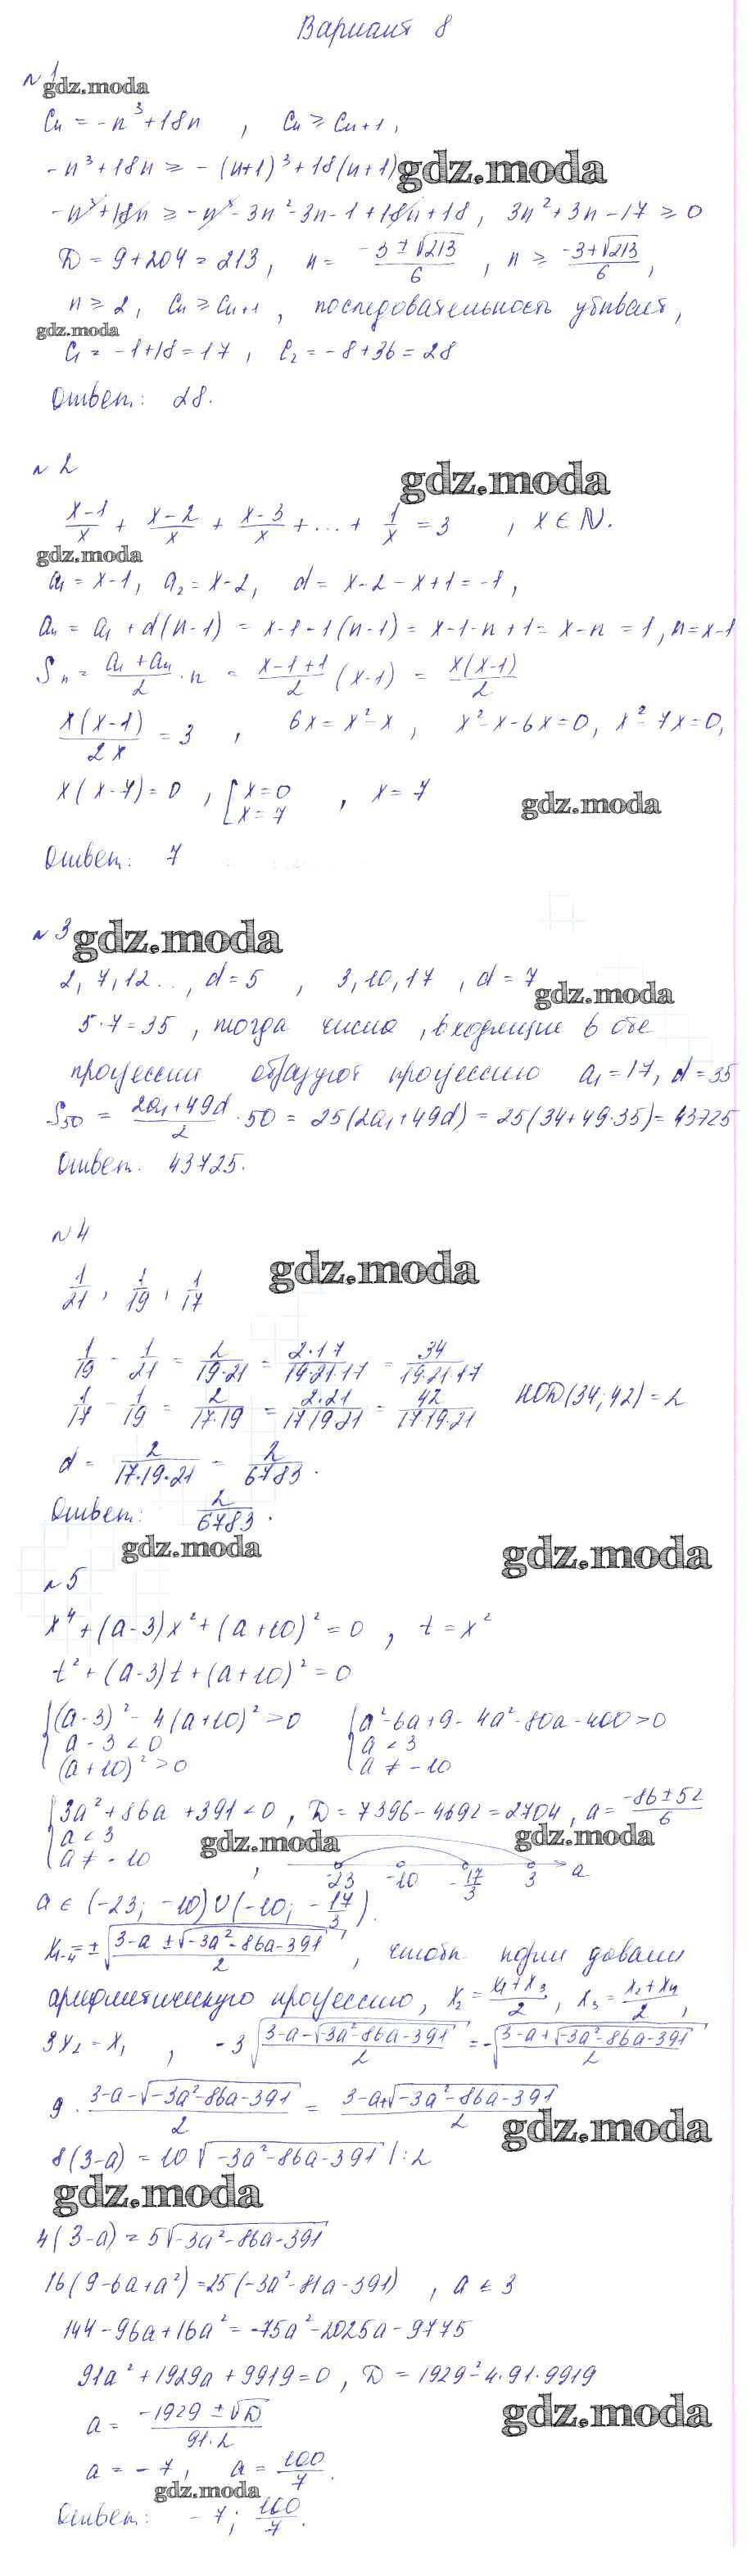 Вариант 8
№1
gdz.moda
Cn = -n³+18n , Cn ≥ Cn+1,
-n³+18n ≥ -(n+1)³+18(n+1)
gdz.moda
-n³+18n ≥ -n³-3n²-3n-1+18n+18, 3n²+3n-17 ≥ 0
D = 9+204 = 213, n = (-3±√213)/6 , n ≥ (-3+√213)/6,
n ≥ 2, Cn ≥ Cn+1, последовательность убывает,
gdz.moda
C1 = -1+18 = 17, C2 = -8+36 = 28
Ответ: 28.
№2
gdz.moda
(x-1)/x + (x-2)/x + (x-3)/x + ... + 1/x = 3 , x ∈ N.
gdz.moda
a1 = x-1, a2 = x-2, d = x-2-x+1 = -1,
an = a1 + d(n-1) = x-1-1(n-1) = x-1-n+1 = x-n = 1, n = x-1
Sn = (a1+an)/2 · n = (x-1+1)/2 (x-1) = x(x-1)/2
x(x-1)/2x = 3 , 6x = x²-x , x²-x-6x=0, x²-7x=0,
x(x-7)=0 , [x=0 x=7 , x=7
gdz.moda
Ответ: 7
№3
gdz.moda
2, 7, 12..., d=5 , 3, 10, 17 , d=7
gdz.moda
5·7=35 , тогда числа, входящие в обе
прогрессии образуют прогрессию a1=17, d=35
S50 = (2a1+49d)/2 · 50 = 25(2a1+49d) = 25(34+49·35) = 43725
Ответ. 43725.
№4
gdz.moda
1/21, 1/19, 1/17
1/19 - 1/21 = 2/(19·21) = 2·17/(19·21·17) = 34/(19·21·17)
1/17 - 1/19 = 2/(17·19) = 2·21/(17·19·21) = 42/(17·19·21) НОД(34;42)=2
d = 2/(17·19·21) = 2/6783.
Ответ: 2/6783.
gdz.moda
gdz.moda
№5
x⁴+(a-3)x²+(a+10)²=0 , t=x²
t²+(a-3)t+(a+10)²=0
{(a-3)²-4(a+10)²>0 {a²-6a+9-4a²-80a-400>0
a-3<0 a<3
(a+10)²>0 a≠-10
{3a²+86a+391<0, D=7396-4692=2704, a=(-86±52)/6
a<3
gdz.moda
gdz.moda
a≠-10 , -23 -10 -17/3 3 a
a ∈ (-23; -10)∪(-10; -17/3).
x1-4=±√((3-a±√(-3a²-86a-391))/2) , чтобы корни давали
арифметическую прогрессию, x2=(x1+x3)/2, x3=(x2+x4)/2,
3x2=x1 , -3√((3-a-√(-3a²-86a-391))/2) = -√((3-a+√(-3a²-86a-391))/2)
9·(3-a-√(-3a²-86a-391))/2 = (3-a+√(-3a²-86a-391))/2
gdz.moda
8(3-a)=10√(-3a²-86a-391) |:2
gdz.moda
4(3-a)=5√(-3a²-86a-391)
16(9-6a+a²)=25(-3a²-81a-391) , a<3
144-96a+16a²=-75a²-2025a-9775
91a²+1929a+9919=0, D=1929²-4·91·9919
a=(-1929±√D)/(91·2)
gdz.moda
a=-7, a=100/7.
gdz.moda
Ответ: -7; 100/7.